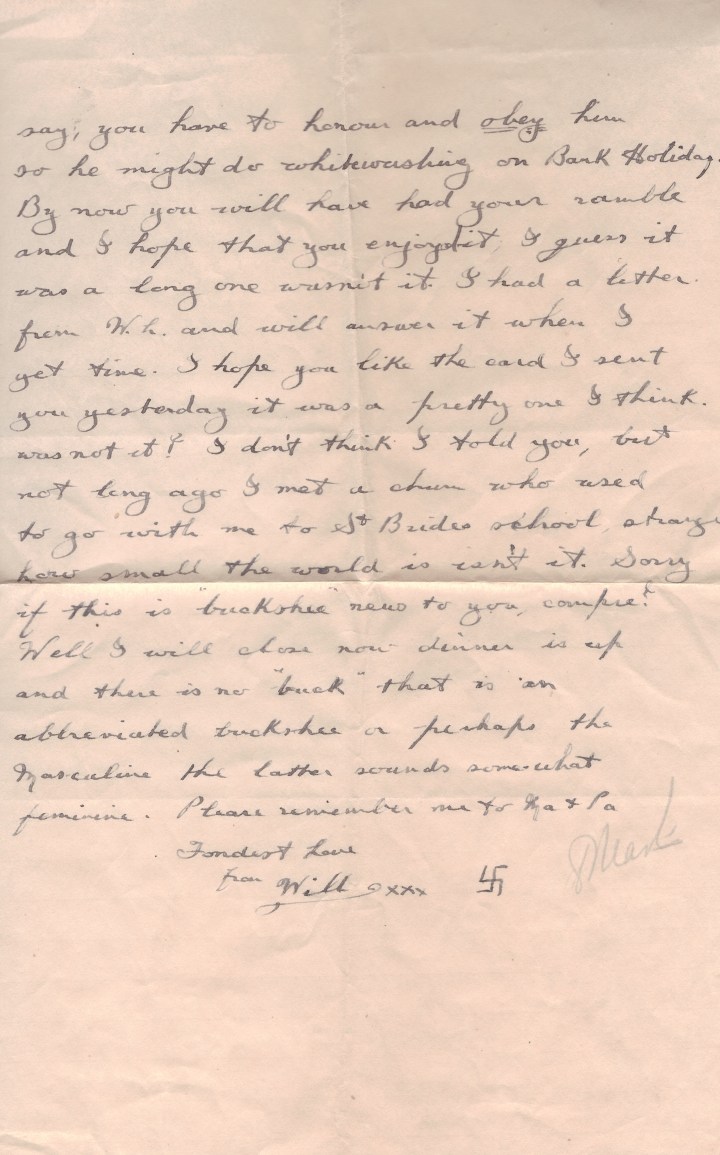 say, you have to honour and obey him
so he might do whitewashing on Bank Holiday.
By now you will have had your ramble
and I hope that you enjoyed it, I guess it
was a long one wasn't it. I had a letter
from W.h. and will answer it when I
get time. I hope you like the card I sent
you yesterday it was a pretty one I think.
was not it? I don't think I told you, but
not long ago I met a chum who used
to go with me to St Brides school, strange
how small the world is isn't it. Sorry
if this is "buckshee" news to you, compre?
Well I will close now dinner is up
and there is no "buck" that is an
abbreviated buckshee or perhaps the
Masculine the latter sounds somewhat
feminine. Please remember me to Ma & Pa
Fondest Love
from Will xxx 卐